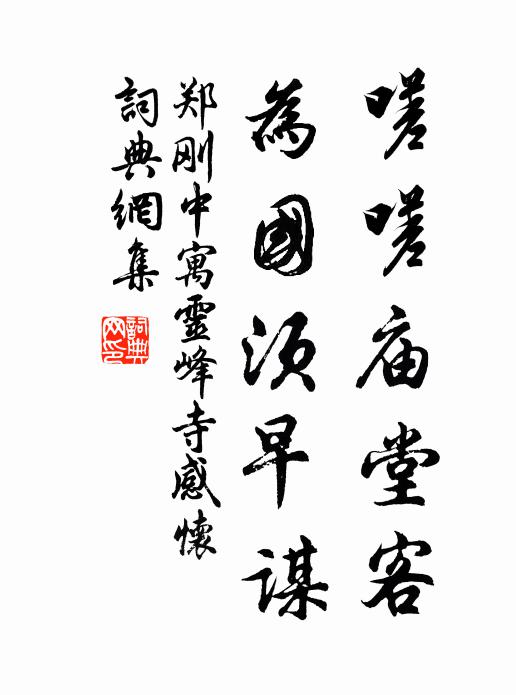 嗟嗟庙堂客
為國须早谋
郑刚中寓靈峰寺感懷
詞典網集
詞典
网印